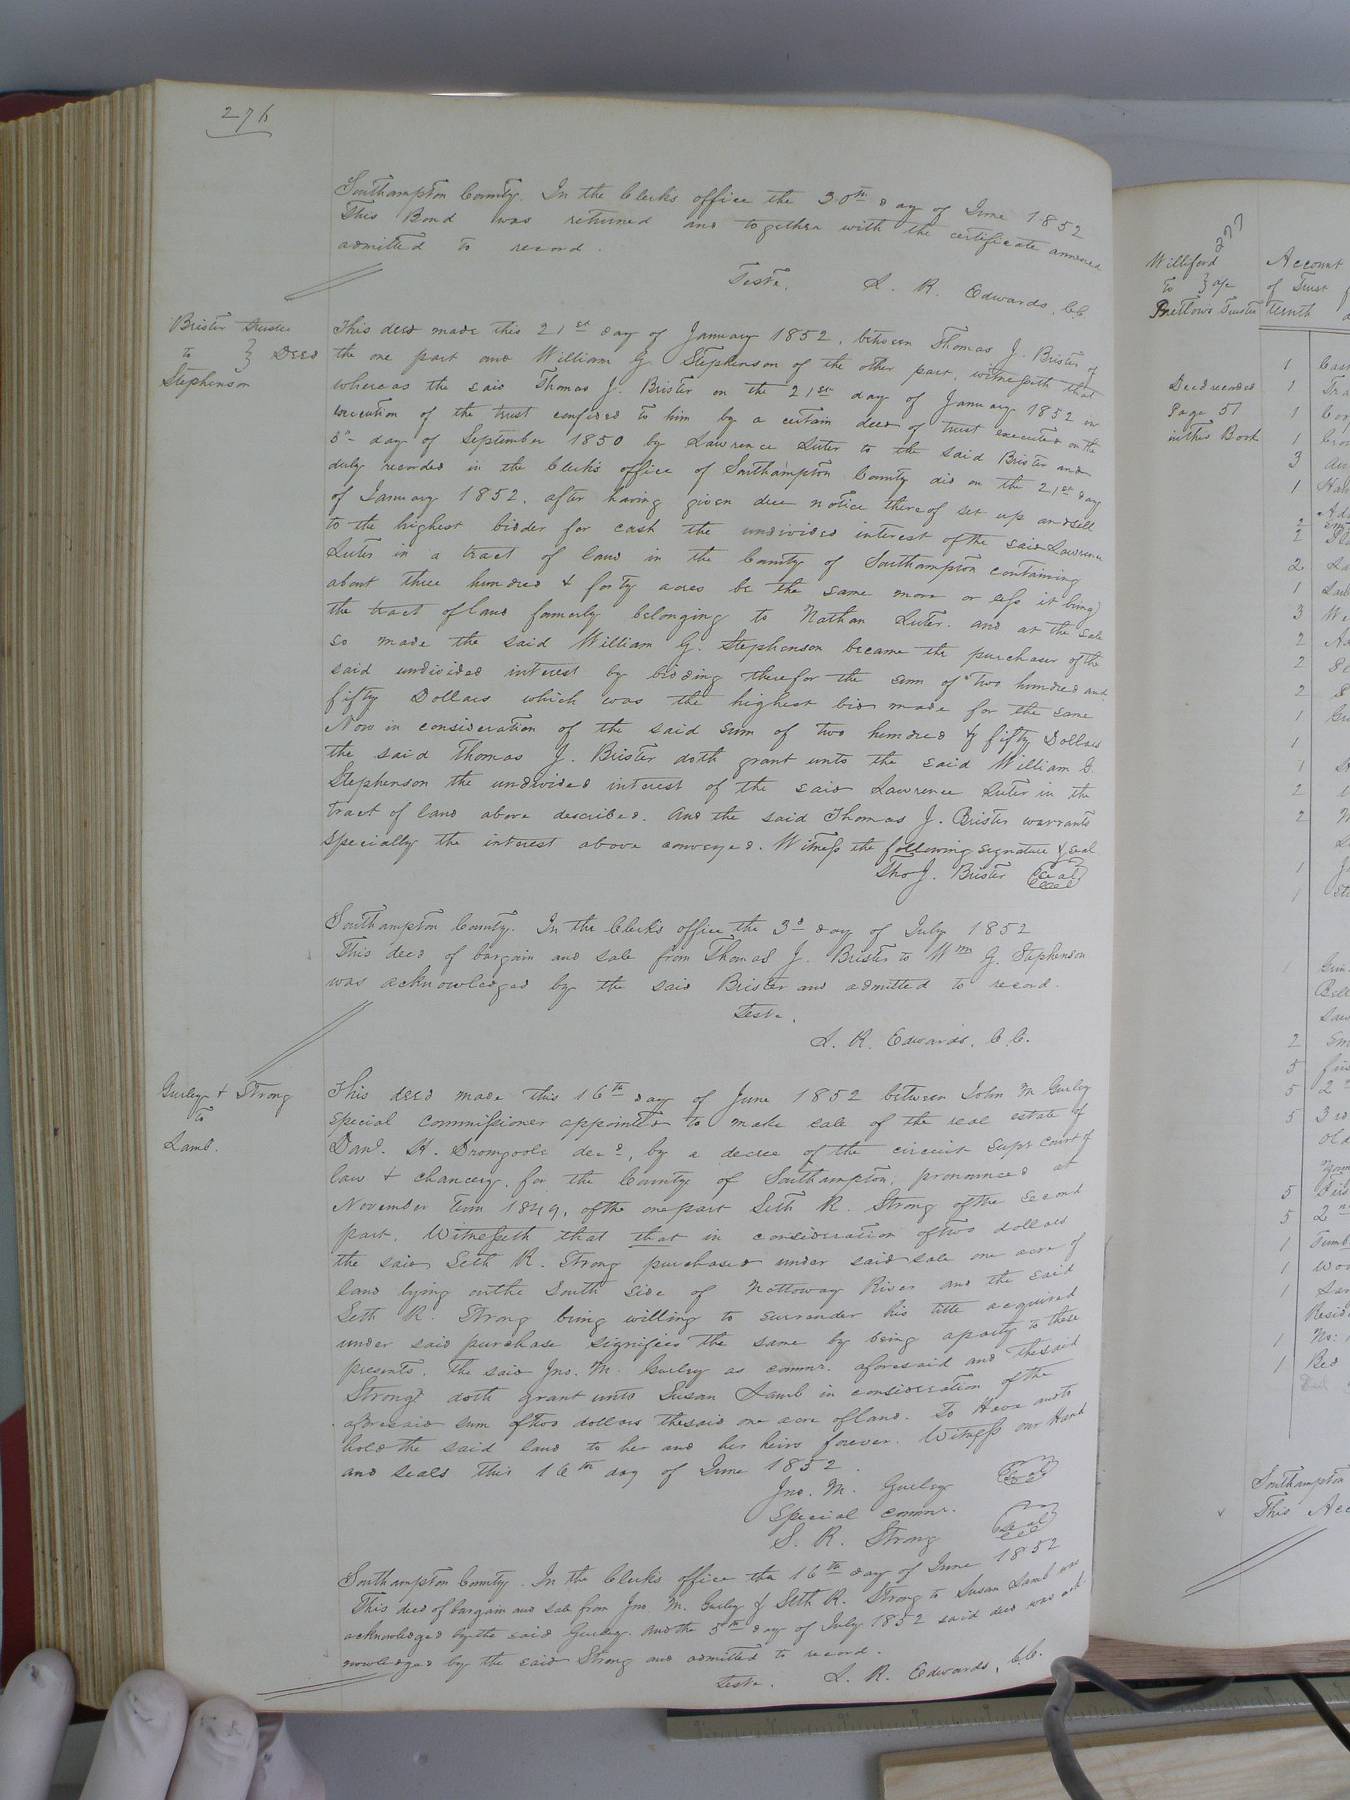 276
Southampton County. In the Clerk's office the 30th day of June 1852
This Bond was returned and together with the certificate annexed
admitted to record.
Teste. L. R. Edwards, C.C.
Brister Trustee
to } Deed
Stephenson
This deed made this 21st day of January 1852, between Thomas J. Brister of
the one part and William G. Stephenson of the other part, witnesseth that
whereas the said Thomas J. Brister on the 21st day of January 1852 in
execution of the trust confided to him by a certain deed of trust executed on the
day of September 1850 by Lawrence Luter to the said Brister and
duly recorded in the Clerk's office of Southampton County did on the 21st day
of January 1852, after having given due notice thereof set up and sell
to the highest bidder for cash the undivided interest of the said Lawrence
Luter in a tract of land in the County of Southampton containing
about three hundred & forty acres be the same more or less it being
the tract of land formerly belonging to Nathan Luter. and at the sale
so made the said William G. Stephenson became the purchaser of the
said undivided interest by bidding therefor the sum of Two hundred and
fifty Dollars which was the highest bid made for the same
Now in consideration of the said sum of two hundred & fifty Dollars
the said Thomas J. Brister doth grant unto the said William G.
Stephenson the undivided interest of the said Lawrence Luter in the
tract of land above described. And the said Thomas J. Brister warrants
specially the interest above conveyed. Witness the following signature & seal
Tho J. Brister Seal
Southampton County. In the Clerk's office the 3d day of July 1852
This deed of bargain and sale from Thomas J. Brister to Wm G. Stephenson
was acknowledged by the said Brister and admitted to record.
Teste.
L. R. Edwards, C.C.
Gurley & Strong
to
Lamb.
This deed made this 16th day of June 1852 between John M Gurley
special commissioner appointed to make sale of the real estate of
Danl. H. Dromgoole decd, by a decree of the circuit Supr Court of
law & chancery, for the County of Southampton, pronounced at
November term 1849, of the one part Seth R. Strong of the second
part. Witnesseth that that in consideration of two dollars
the said Seth R. Strong purchased under said sale one acre of
land lying on the South side of Nottoway River and the said
Seth R. Strong being willing to surrender his title acquired
under said purchase signifies the same by being a party to these
presents. the said Jno. M. Gurley as commr. aforesaid and the said
Strong doth grant unto Susan Lamb in consideration of the
aforesaid sum of two dollars the said one acre of land. To Have and to
hold the said land to her and her heirs forever. Witness our Hand
and seals this 16th day of June 1852.
Jno. M. Gurley Seal
Special commr.
S. R. Strong Seal
Southampton County. In the Clerk's office the 16th day of June 1852
This deed of bargain and sale from Jno. M. Gurley & Seth R. Strong to Susan Lamb was
acknowledged by the said Gurley. And the 5th day of July 1852 said deed was ack-
nowledged by the said Strong and admitted to record.
Teste. L. R. Edwards, C.C.
277
Williford
to }
Pretlows Trustee
Account
of Trust
Deed recorded
Page 51
in this Book
Southampton
This Acc